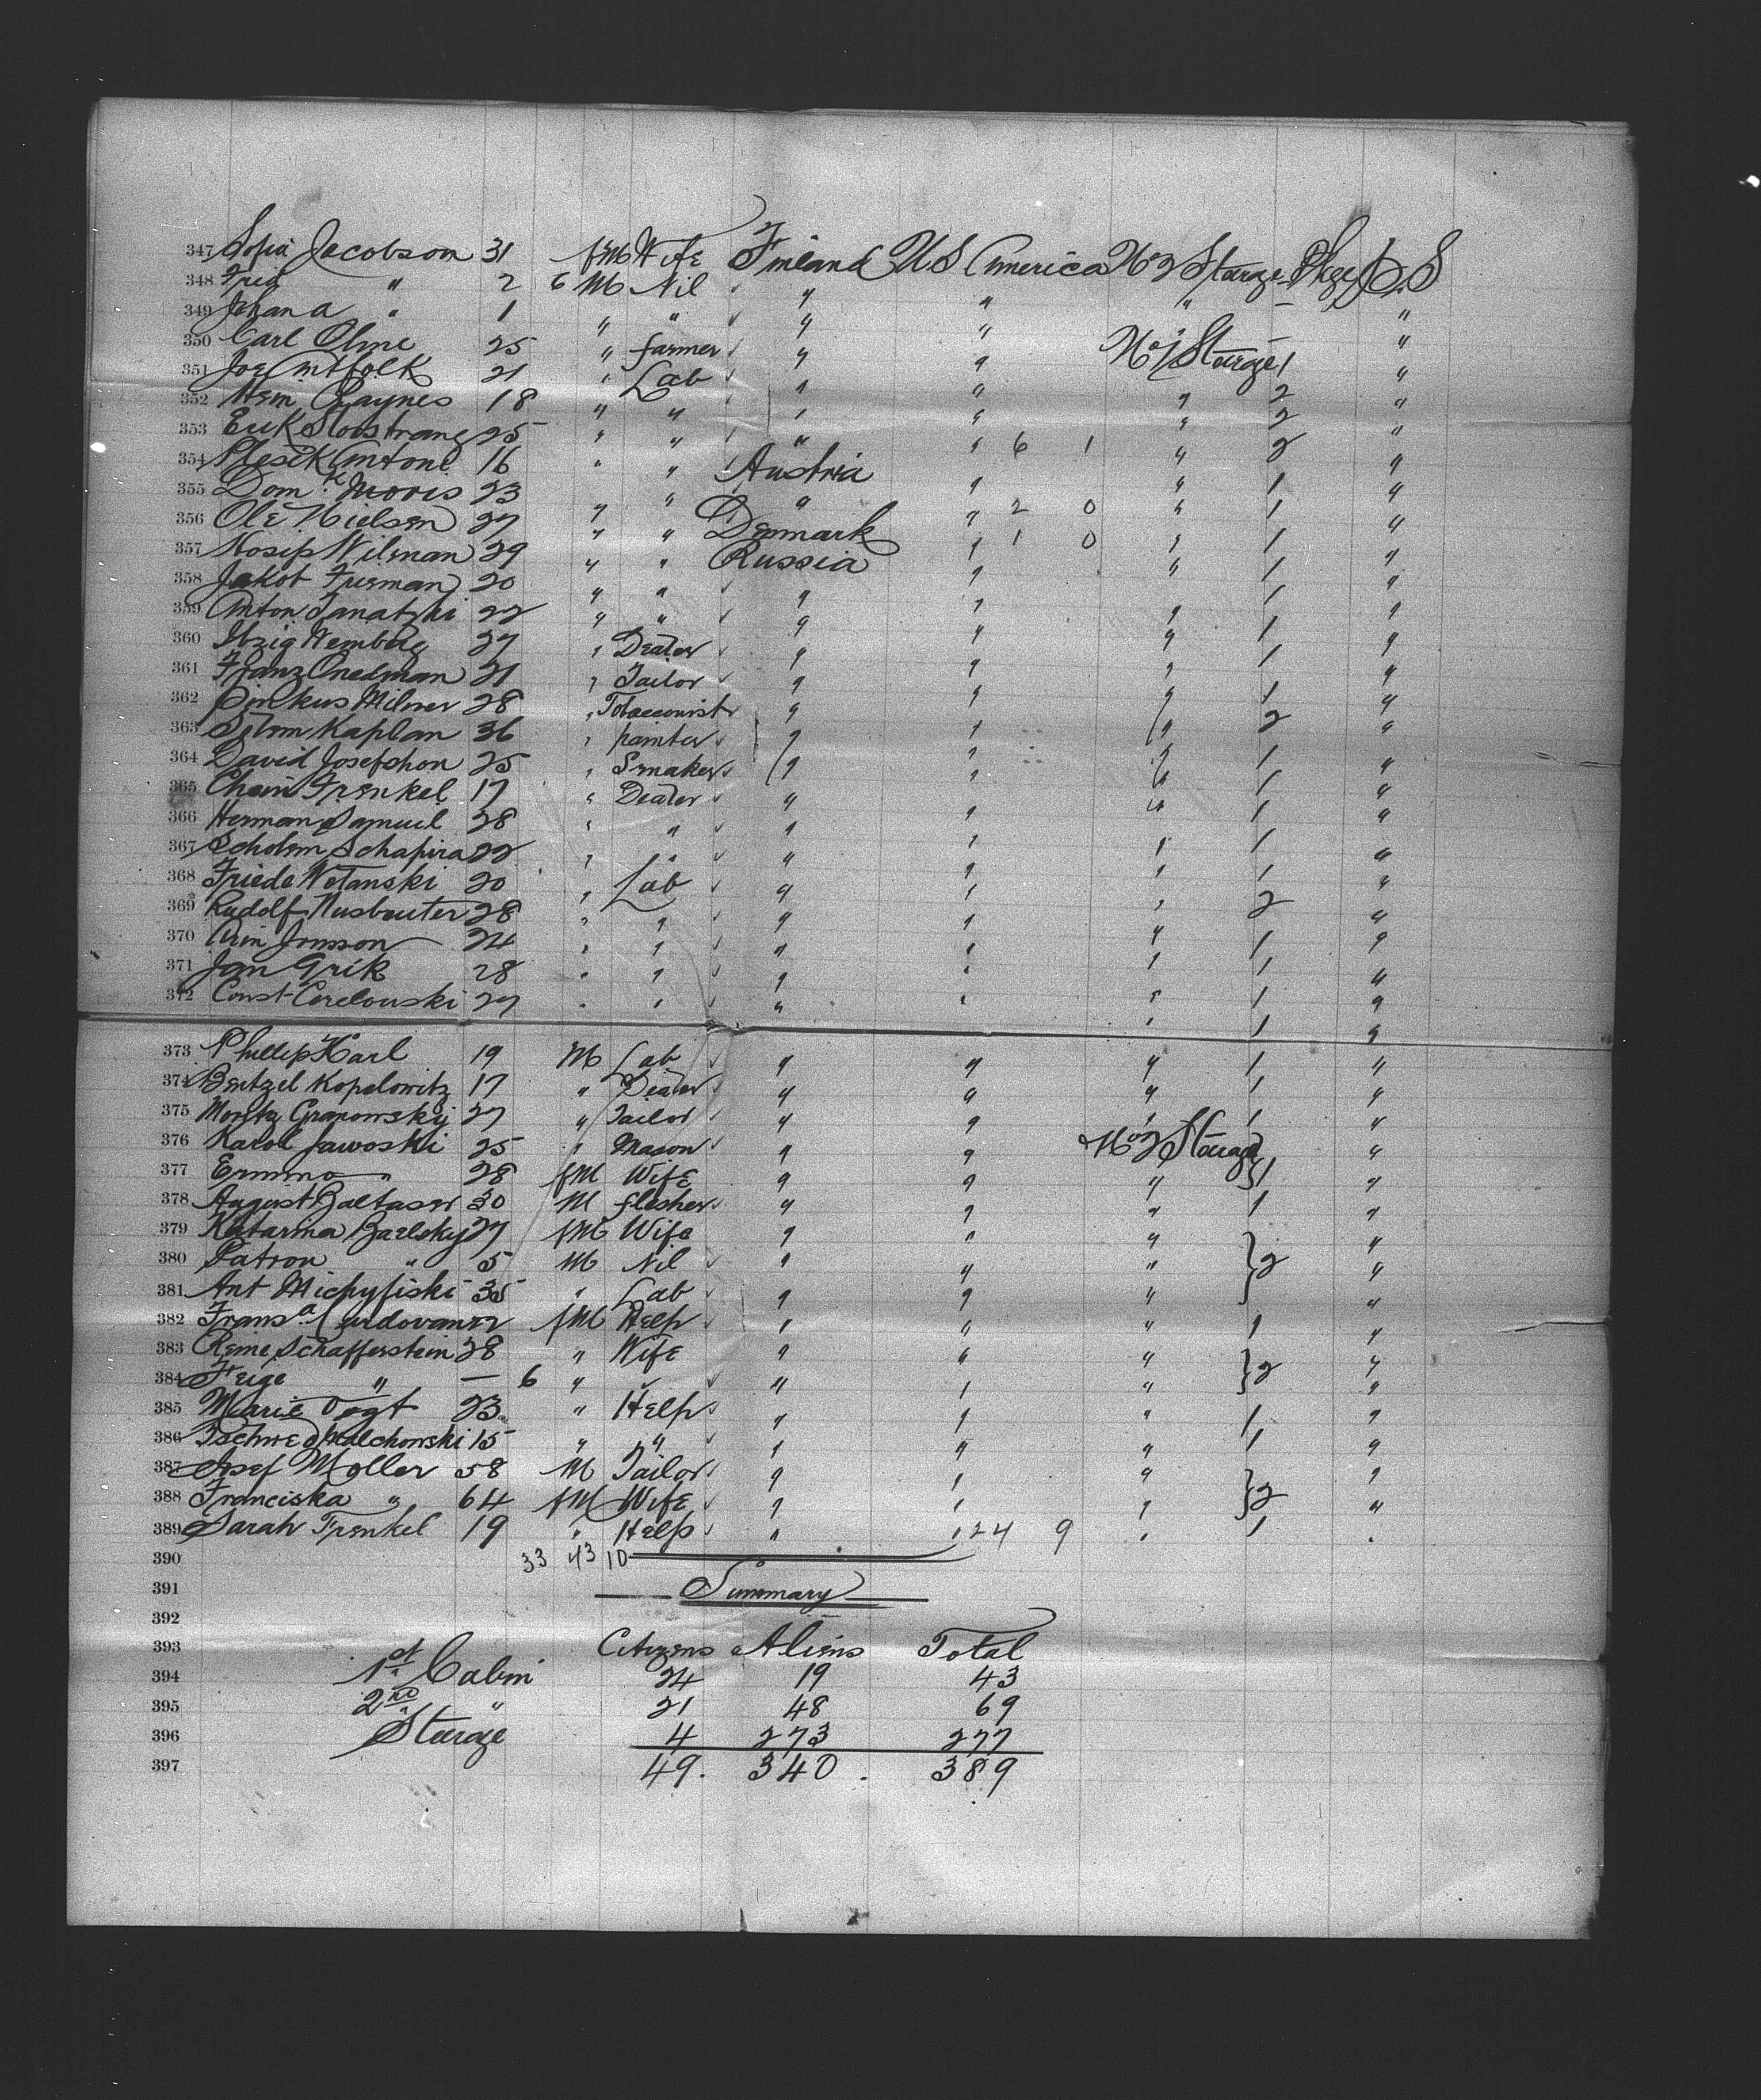 347 Sofia Jacobson 31 fM Wife Finland U.S America No 2 Starge Pkge U.S
348 " 2 6 M Nil " " " "
349 Johana " 1 " " " " "
350 Carl Olme 25 " farmer " " No 1 Starge 1 "
351 Joe 21 " Lab " " " 2 "
352 18 " " " " " 2 "
353 Erik 25 " " " " 6 1 " 2 "
354 Antone 16 " " Austria " " 1 "
355 Dom Moris 23 " " " " 2 0 " 1 "
356 Ole Nielsen 27 " " Denmark " 1 0 " 1 "
357 Wilenan 29 " " Russia " " 1 "
358 Jakob 20 " " " " 1 "
359 Anton Tanatzki 22 " " " " " 1 "
360 Itzig Wemberg 27 " Dealer " " " 1 "
361 Franz Onedman 21 " Tailor " " " 1 "
362 Pinkus Milner 28 " Tobacconist " " " 2 "
363 Kaplan 36 " painter " " " 1 "
364 David Josefohon 25 " Smaker " " " 1 "
365 Chain Frenkel 17 " Dealer " " " 1 "
366 Herman Samuel 28 " " " " " 1 "
367 Scholem Schapira 22 " " " " " 1 "
368 Friede Wotanski 20 " Lab " " " 2 "
369 Rudolf Nusbauter 28 " " " " " 1 "
370 Jonsson 24 " " " " " 1 "
371 Jan Grik 28 " " " " " 1 "
372 Const Cerelouski 27 " " " " " 1 "
373 Phillip Karl 19 M Lab " " " 1 "
374 Bentzel Kopelowitz 17 " Dealer " " " 1 "
375 Moritz Granowsky 27 " Tailor " " " 1 "
376 Karol Jawoski 25 " Mason " " No 2 Starge "
377 Emma " 28 fM Wife " " " 1 "
378 August Baltaser 30 M flesher " " " 1 "
379 Katarina 27 fM Wife " " " "
380 Patron " 5 M Nil " " " 2 "
381 Ant 35 " Lab " " " "
382 Fransa 22 fM Help " " " 1 "
383 Reine Schafferstein 28 " Wife " " " 2 "
384 Feige " — 6 " " " " "
385 Marie Vogt 23 " Help " " " 1 "
386 Malchowski 15 " " " " " 1 "
387 Josef Moller 58 M Tailor " " " 2 "
388 Franciska " 64 fM Wife " " " "
389 Sarah Frenkel 19 " Help " " 24 9 " 1 "
390 33 43 10
391 Summary
392
393 Citizens Aliens Total
394 1st Cabin 24 19 43
395 2nd " 21 48 69
396 Starge 4 273 277
397 49. 340. 389